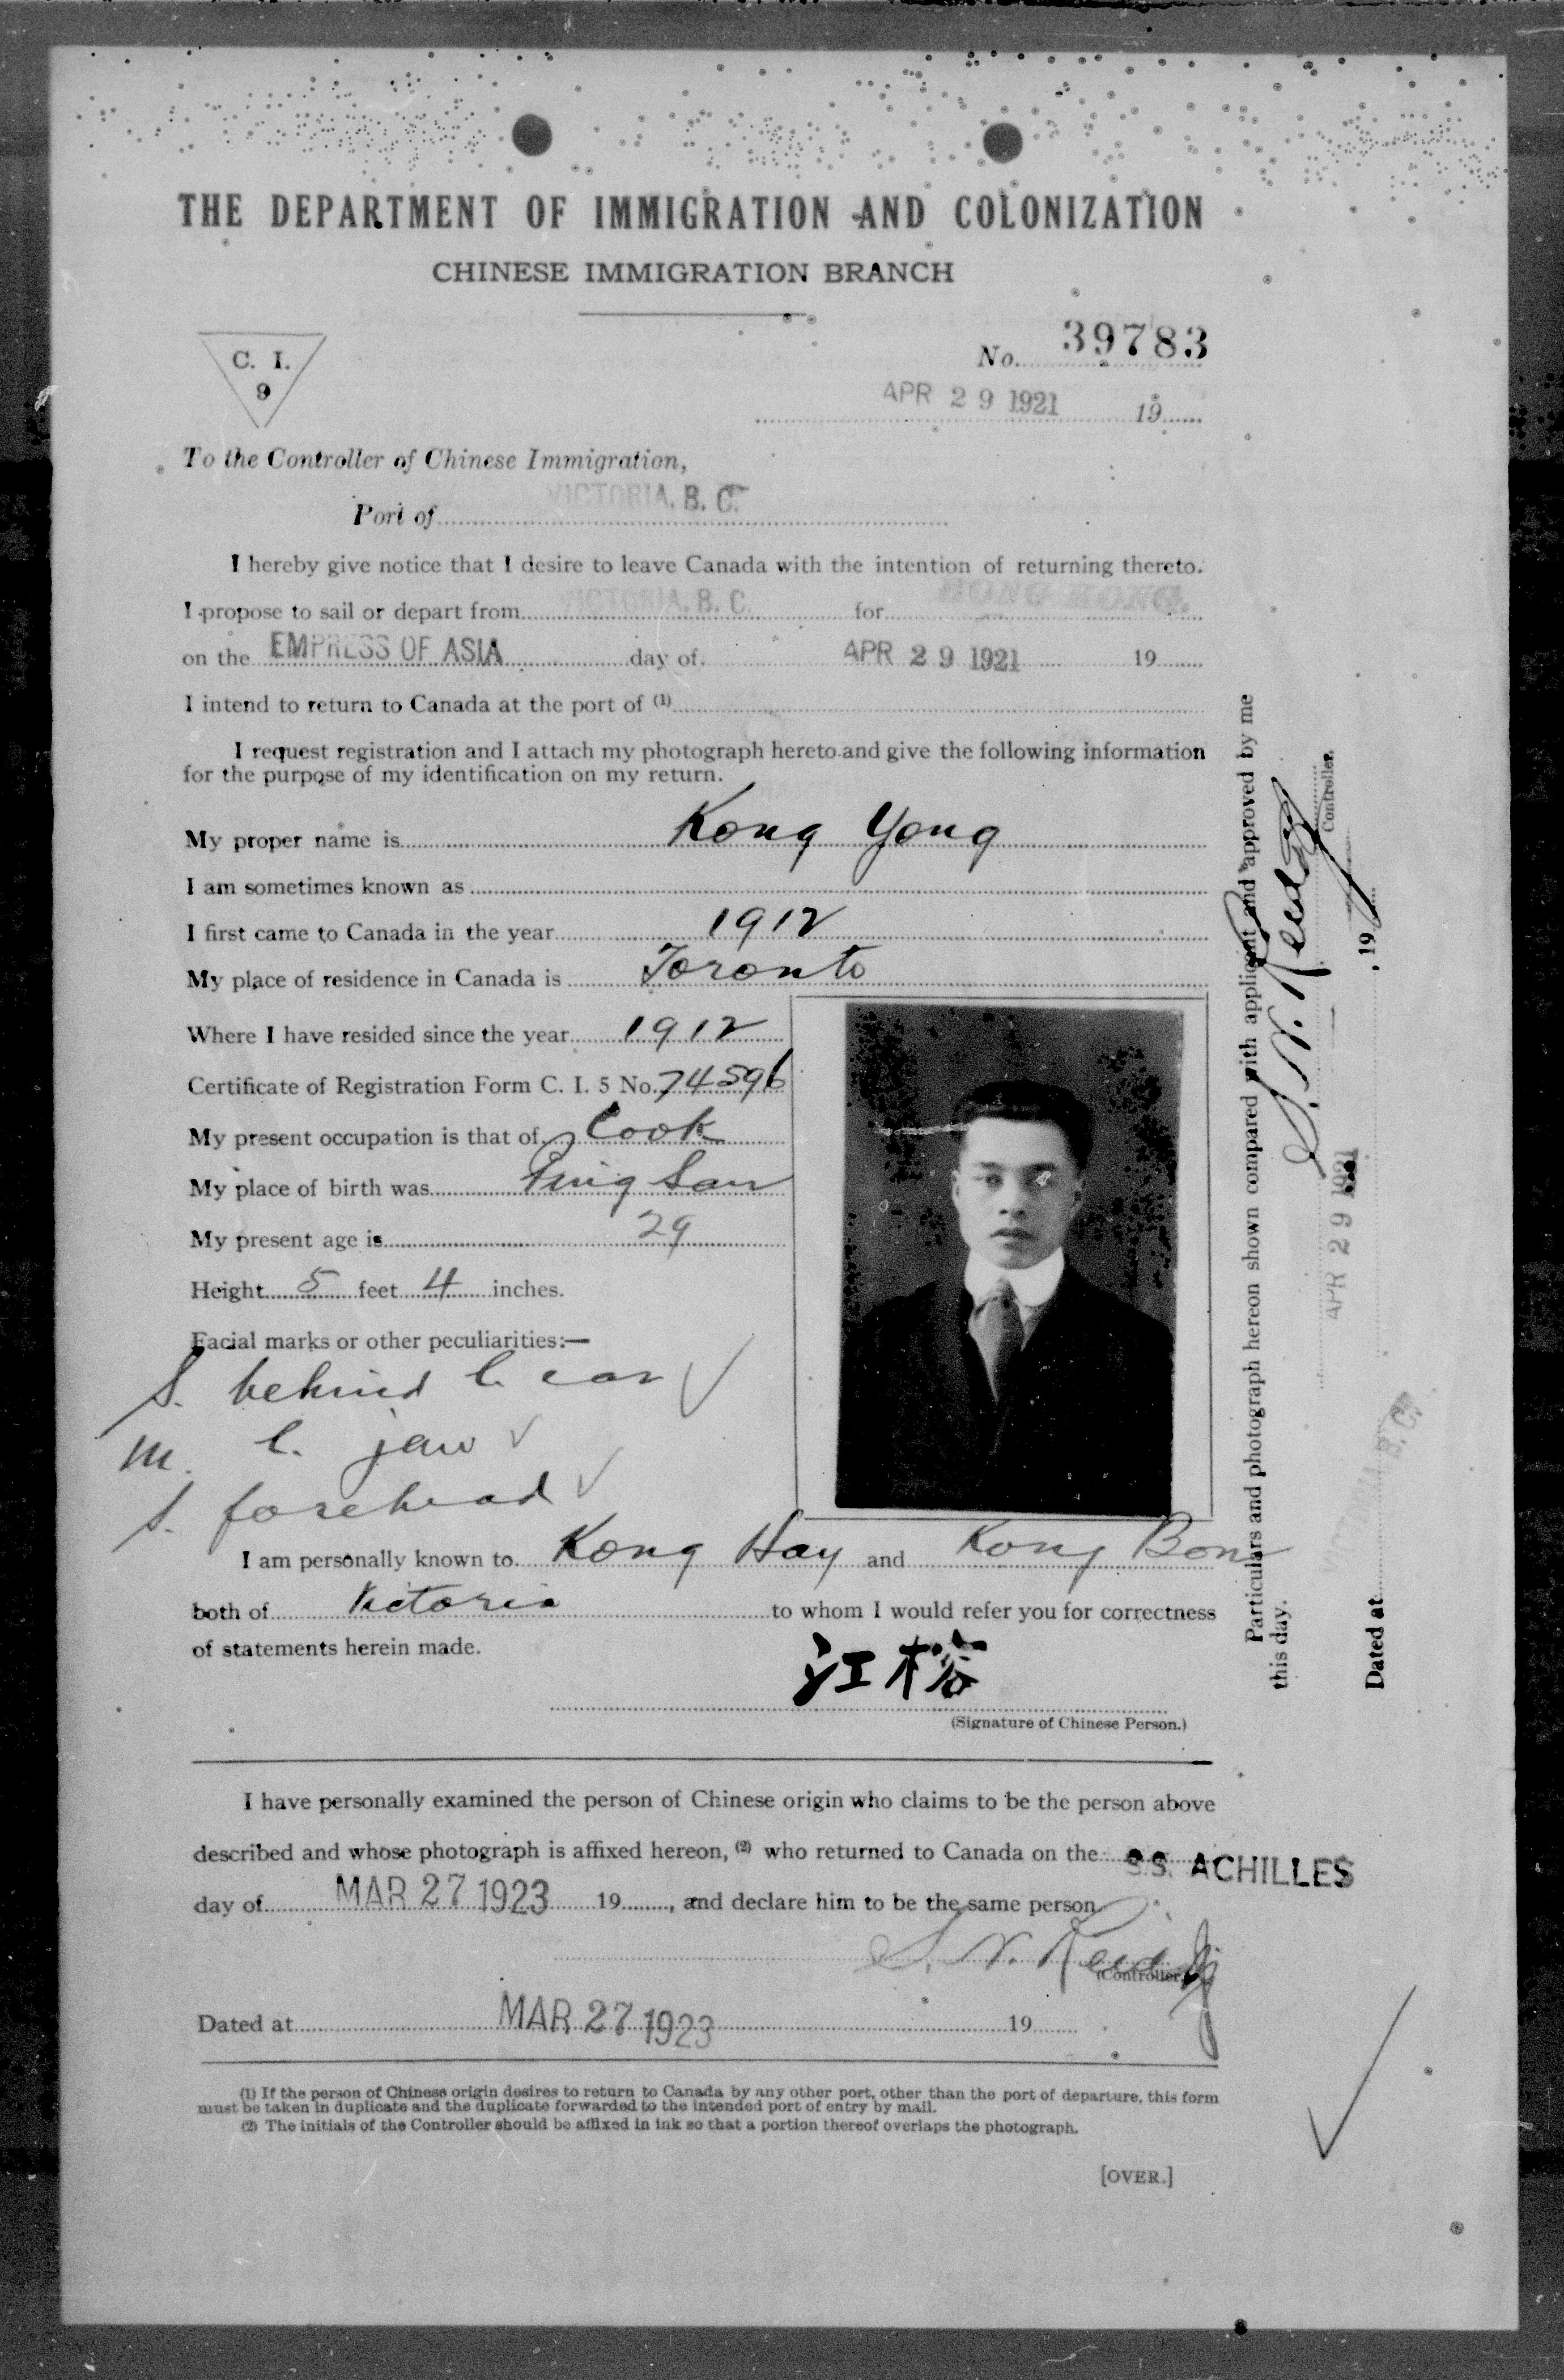 THE DEPARTMENT OF IMMIGRATION AND COLONIZATION
CHINESE IMMIGRATION BRANCH
C. I.
9
No. 39783
APR 29 1921 19
To the Controller of Chinese Immigration,
Port of VICTORIA, B. C.
I hereby give notice that I desire to leave Canada with the intention of returning thereto.
I propose to sail or depart from VICTORIA, B. C. for HONG KONG.
on the EMPRESS OF ASIA day of APR 29 1921 19
I intend to return to Canada at the port of (1)
I request registration and I attach my photograph hereto and give the following information
for the purpose of my identification on my return.
My proper name is Kong Yong
I am sometimes known as
I first came to Canada in the year 1912
My place of residence in Canada is Toronto
Where I have resided since the year 1912
Certificate of Registration Form C. I. 5 No. 74596
My present occupation is that of Cook
My place of birth was Ping San
My present age is 29
Height 5 feet 4 inches.
Facial marks or other peculiarities:—
S. behind l. ear ✓
m. l. jaw ✓
S. forehead ✓
I am personally known to Kong Hay and Kong Bong
both of Victoria to whom I would refer you for correctness
of statements herein made.
江榕
(Signature of Chinese Person.)
I have personally examined the person of Chinese origin who claims to be the person above
described and whose photograph is affixed hereon, (2) who returned to Canada on the SS. ACHILLES
day of MAR 27 1923 19, and declare him to be the same person.
S. N. Reid
(Controller.)
Dated at MAR 27 1923 19
(1) If the person of Chinese origin desires to return to Canada by any other port, other than the port of departure, this form
must be taken in duplicate and the duplicate forwarded to the intended port of entry by mail.
(2) The initials of the Controller should be affixed in ink so that a portion thereof overlaps the photograph.
[OVER.]
Particulars and photograph hereon shown compared with applicant and approved by me
this day.
APR 29 1921
S. N. Reid
Controller.
Dated at VICTORIA B. C. , 19